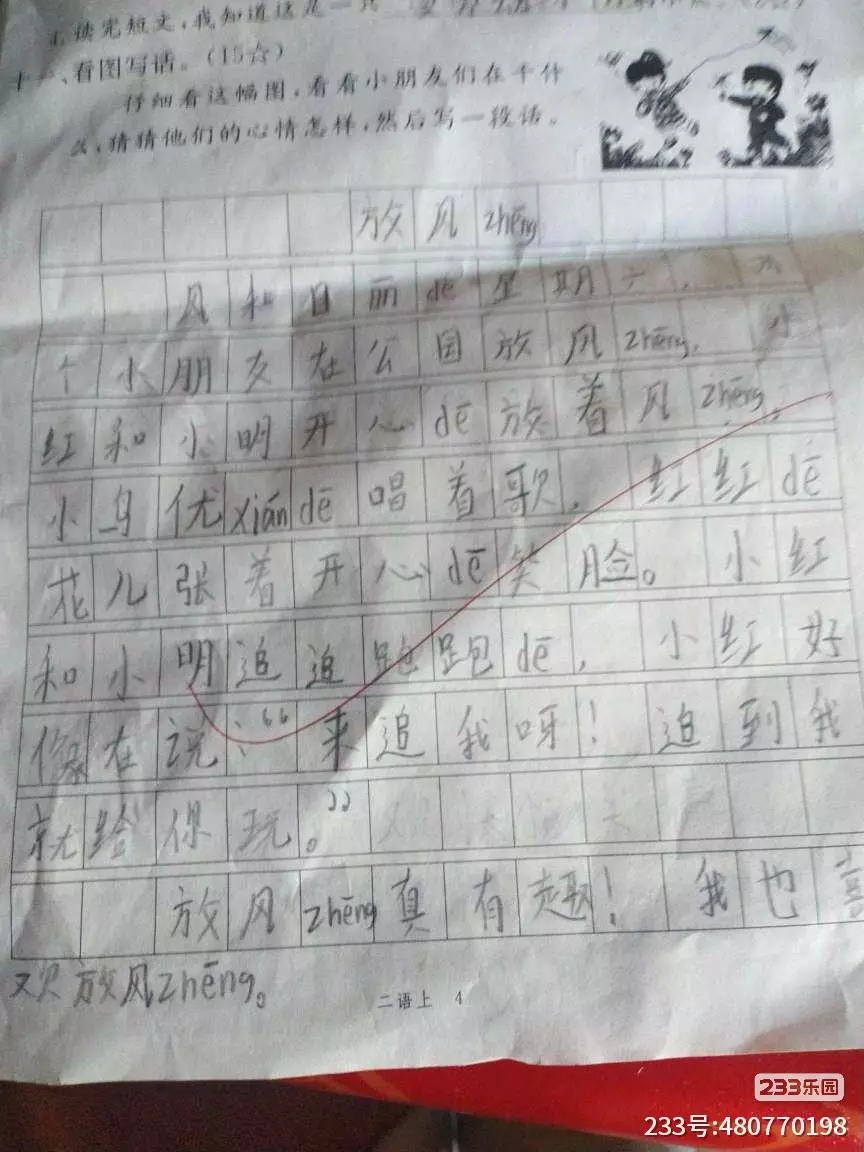 1.读完短文,我知道这是一只
十一、看图写话。(15分)
仔细看这幅图,看看小朋友们在干什
么,猜猜他们的心情怎样,然后写一段话。
放风zhēng
风和日丽dē星期六,两
个小朋友在公园放风zhēng,小
红和小明开心dē放着风zhēng。
小鸟优xiándē唱着歌,红红dē
花儿张着开心dē笑脸。小红
和小明追追跑跑dē,小红好
像在说:“来追我呀!追到我
就给你玩。”
放风zhēng真有趣!我也喜
欢放风zhēng。
二语上 4
233乐园
233号:480770198